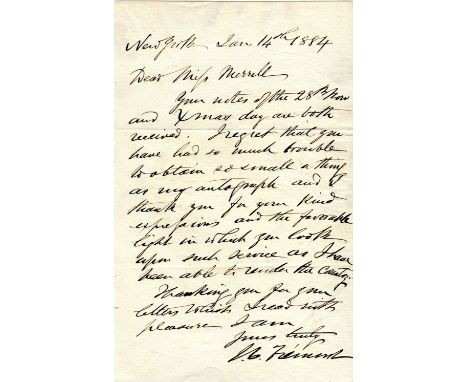 New York Jan 14th 1884
Dear Miss Merrill
Your notes of the 28th Nov
and Xmas day are both
received. I regret that you
have had so much trouble
to obtain so small a thing
as my autograph and I
thank you for your kind
expressions and the favorable
light in which you look
upon such service as I have
been able to render the country.
Thanking you for your
letters which I read with
pleasure I am
yours truly
J. C. Frémont